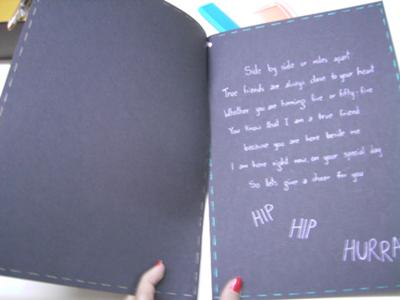 Side by side or miles apart
True friends are always close to your heart
Whether you are turning five or fifty-five
You know that I am a true friend
because you are here beside me
I am here right now, on your special day
So lets give a cheer for you
HIP
HIP
HURRA